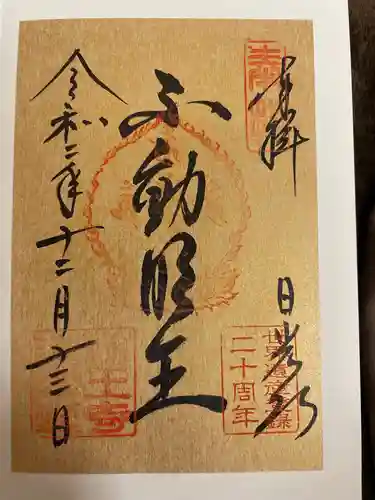 奉拝
日光山
不動明王
令和二年十二月十三日
世界遺産登録
二十周年